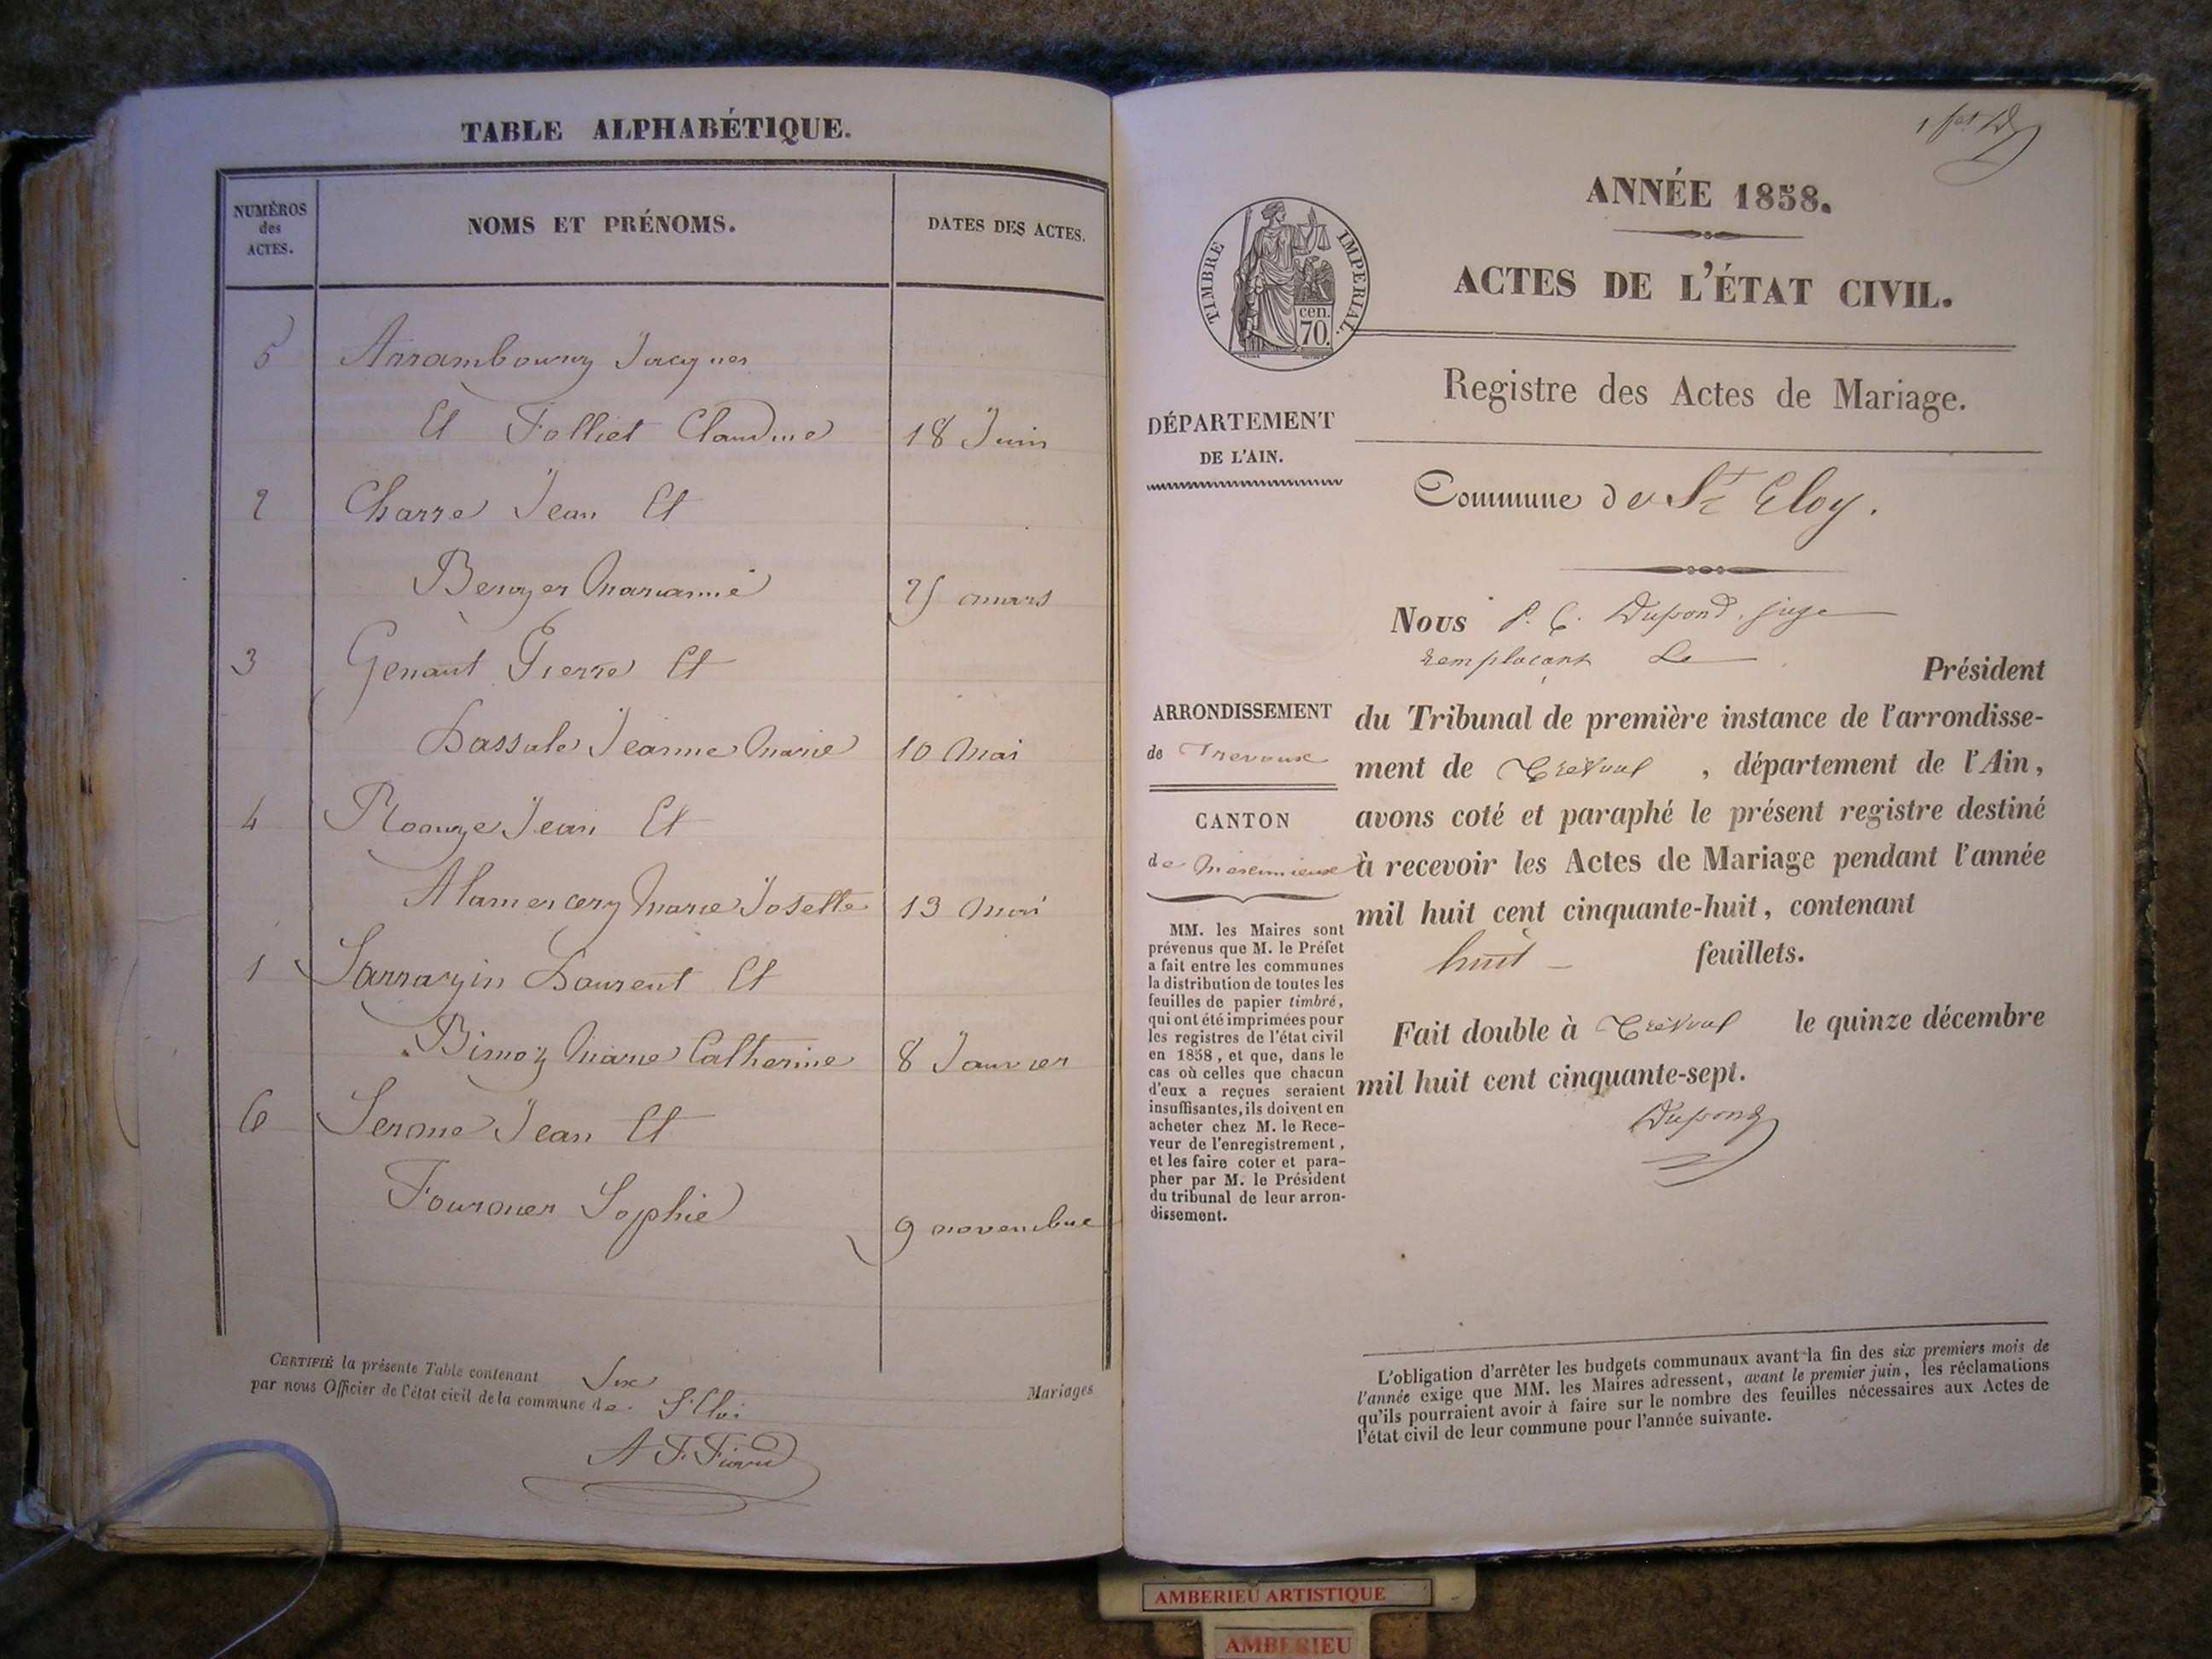 TABLE ALPHABÉTIQUE.
NUMÉROS
des
ACTES.
NOMS ET PRÉNOMS.
DATES DES ACTES.
5 Jacques
Et Folliet Claudine 18 Juin
2 Charre Jean Et
Marianne 25 mars
3 Pierre Et
Jeanne Marie 10 Mai
4 Jean Et
Alamercery Marie Josette 13 Mai
1 Sarrazin Laurent Et
Marie Catherine 8 Janvier
6 Jean Et
Sophie 9 novembre
CERTIFIÉ la présente Table contenant Six Mariages
par nous Officier de l'état civil de la commune de
1er
ANNÉE 1858.
ACTES DE L'ÉTAT CIVIL.
TIMBRE IMPERIAL.
cen.
70.
Registre des Actes de Mariage.
DÉPARTEMENT
DE L'AIN.
Commune de St Eloy.
Nous Dupond juge
remplaçant Le Président
ARRONDISSEMENT
de Trevoux
CANTON
de Meximieux
MM. les Maires sont
prévenus que M. le Préfet
a fait entre les communes
la distribution de toutes les
feuilles de papier timbré,
qui ont été imprimées pour
les registres de l'état civil
en 1858, et que, dans le
cas où celles que chacun
d'eux a reçues seraient
insuffisantes, ils doivent en
acheter chez M. le Rece-
veur de l'enregistrement,
et les faire coter et para-
pher par M. le Président
du tribunal de leur arron-
dissement.
du Tribunal de première instance de l'arrondisse-
ment de Trévoux, département de l'Ain,
avons coté et paraphé le présent registre destiné
à recevoir les Actes de Mariage pendant l'année
mil huit cent cinquante-huit, contenant
huit feuillets.
Fait double à Trévoux le quinze décembre
mil huit cent cinquante-sept.
Dupond
L'obligation d'arrêter les budgets communaux avant la fin des six premiers mois de
l'année exige que MM. les Maires adressent, avant le premier juin, les réclamations
qu'ils pourraient avoir à faire sur le nombre des feuilles nécessaires aux Actes de
l'état civil de leur commune pour l'année suivante.
AMBERIEU ARTISTIQUE
AMBERIEU